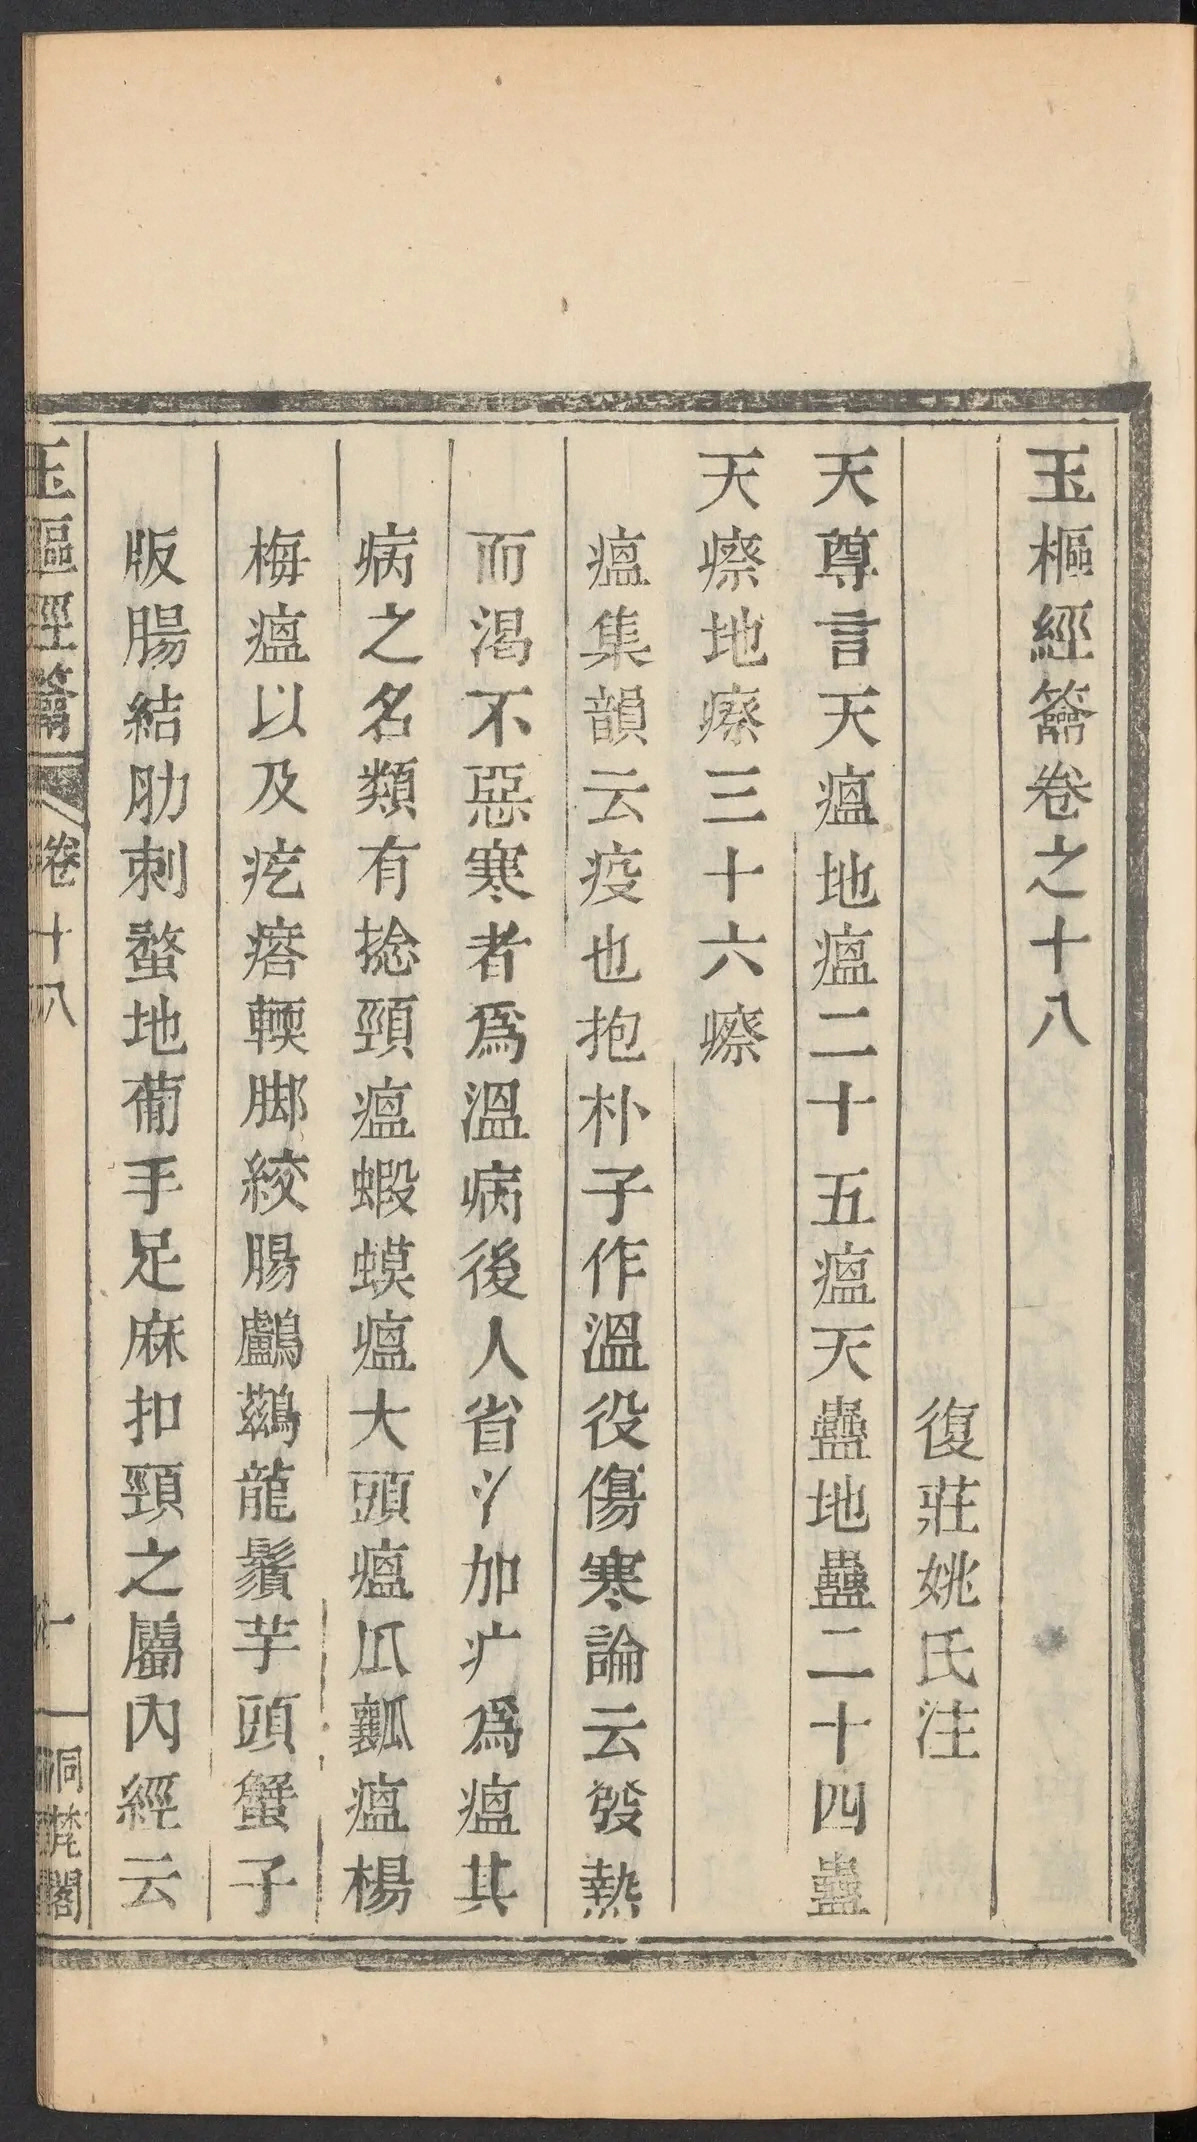 玉樞經籥卷之十八
復莊姚氏注
天尊言天瘟地瘟二十五瘟天蠱地蠱二十四蠱
天瘵地瘵三十六瘵
瘟集韻云疫也抱朴子作溫役傷寒論云發熱
而渴不惡寒者爲溫病後人省氵加疒爲瘟其
病之名類有捻頸瘟蝦蟆瘟大頭瘟瓜瓤瘟楊
梅瘟以及疙瘩輭脚絞腸鸕鷀龍鬚芋頭蟹子
版腸結肋刺蝥地葡手足麻扣頸之屬內經云
玉樞經籥 卷十八 一 洞梵閣